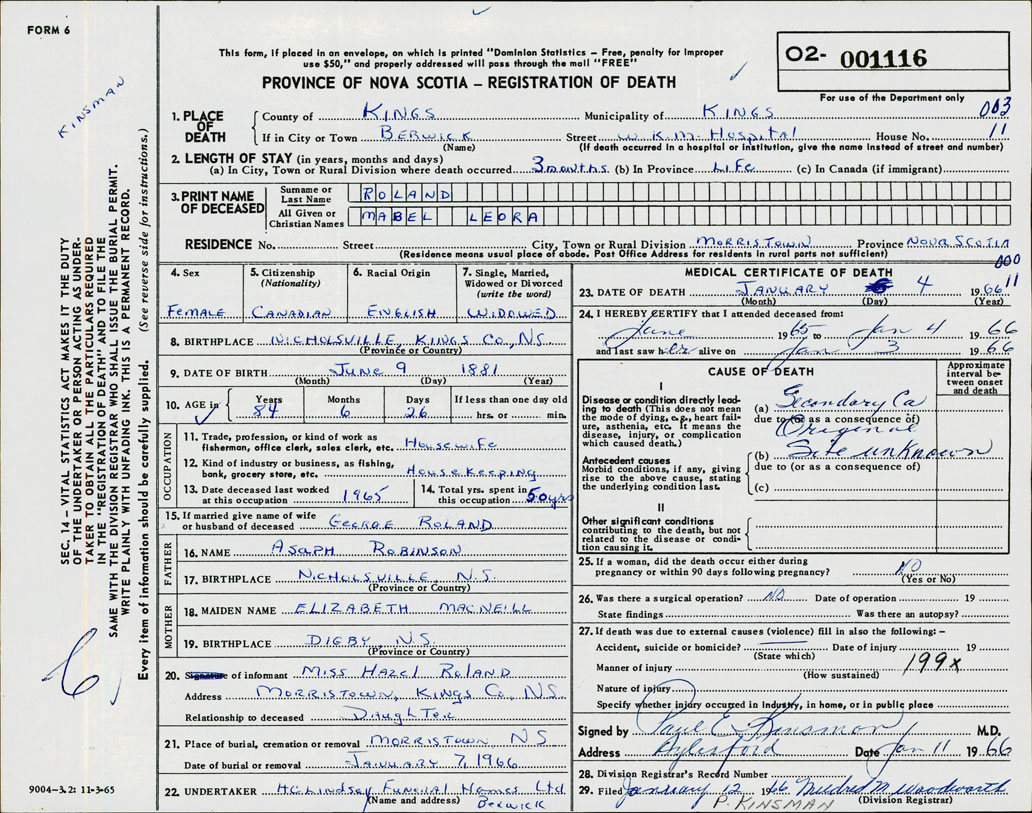 FORM 6
This form, if placed in an envelope, on which is printed "Dominion Statistics – Free, penalty for improper
use $50," and properly addressed will pass through the mail "FREE"
PROVINCE OF NOVA SCOTIA – REGISTRATION OF DEATH
O2- 001116
For use of the Department only
KINSMAN
003
1. PLACE OF DEATH
County of KINGS Municipality of KINGS
If in City or Town BERWICK Street W.K.M. Hospital House No. 11
(Name) (If death occurred in a hospital or institution, give the name instead of street and number)
2. LENGTH OF STAY (in years, months and days)
(a) In City, Town or Rural Division where death occurred 3 months (b) In Province LIFE (c) In Canada (if immigrant)
3. PRINT NAME OF DECEASED
Surname or Last Name ROLAND
All Given or Christian Names MABEL LEORA
RESIDENCE No. Street City, Town or Rural Division MORRISTOWN Province NOVA SCOTIA
(Residence means usual place of abode. Post Office Address for residents in rural parts not sufficient)
000
11
4. Sex 5. Citizenship (Nationality) 6. Racial Origin 7. Single, Married, Widowed or Divorced (write the word)
FEMALE CANADIAN ENGLISH WIDOWED
8. BIRTHPLACE NICHOLSVILLE, KINGS CO, NS
(Province or Country)
9. DATE OF BIRTH JUNE 9 1881
(Month) (Day) (Year)
10. AGE in Years Months Days If less than one day old
84 6 26 hrs. or min.
OCCUPATION
11. Trade, profession, or kind of work as
fisherman, office clerk, sales clerk, etc. Housewife
12. Kind of industry or business, as fishing,
bank, grocery store, etc. Housekeeping
13. Date deceased last worked at this occupation 1965
14. Total yrs. spent in this occupation 50 yrs
15. If married give name of wife
or husband of deceased GEORGE ROLAND
FATHER
16. NAME ASAPH ROBINSON
17. BIRTHPLACE NICHOLSVILLE, N.S.
(Province or Country)
MOTHER
18. MAIDEN NAME ELIZABETH MACNEILL
19. BIRTHPLACE DIGBY, N.S.
(Province or Country)
20. Signature of informant MISS HAZEL ROLAND
Address MORRISTOWN, KINGS CO, NS
Relationship to deceased DAUGHTER
21. Place of burial, cremation or removal MORRISTOWN NS
Date of burial or removal JANUARY 7, 1966
22. UNDERTAKER H C Lindsay Funeral Homes Ltd
(Name and address) Berwick
MEDICAL CERTIFICATE OF DEATH
23. DATE OF DEATH JANUARY 4 1966
(Month) (Day) (Year)
24. I HEREBY CERTIFY that I attended deceased from:
June 1965 to Jan 4 1966
and last saw her alive on Jan 3 1966
CAUSE OF DEATH
Approximate interval between onset and death
I
Disease or condition directly leading to death (This does not
mean the mode of dying, e.g., heart failure, asthenia, etc. It means the
disease, injury, or complication which caused death.)
(a) Secondary Ca
due to (or as a consequence of)
Original
Antecedent causes
Morbid conditions, if any, giving rise to the above cause, stating
the underlying condition last.
(b) Site unknown
due to (or as a consequence of)
(c)
II
Other significant conditions
contributing to the death, but not related to the disease or condition causing it.
25. If a woman, did the death occur either during
pregnancy or within 90 days following pregnancy? NO
(Yes or No)
26. Was there a surgical operation? NO Date of operation 19
State findings Was there an autopsy?
27. If death was due to external causes (violence) fill in also the following: –
Accident, suicide or homicide? Date of injury 19
(State which)
Manner of injury 199x
(How sustained)
Nature of injury
Specify whether injury occurred in industry, in home, or in public place
Signed by Paul E Kinsman M.D.
Address Aylesford Date Jan 11 1966
28. Division Registrar's Record Number
29. Filed January 12 1966 Mildred M Woodworth
P. KINSMAN (Division Registrar)
SEC. 14 – VITAL STATISTICS ACT MAKES IT THE DUTY
OF THE UNDERTAKER OR PERSON ACTING AS UNDER-
TAKER TO OBTAIN ALL THE PARTICULARS REQUIRED
IN THE "REGISTRATION OF DEATH" AND TO FILE THE
SAME WITH THE DIVISION REGISTRAR WHO SHALL ISSUE THE BURIAL PERMIT.
WRITE PLAINLY WITH UNFADING INK. THIS IS A PERMANENT RECORD.
Every item of information should be carefully supplied. (See reverse side for instructions.)
9004-3.2: 11-3-65